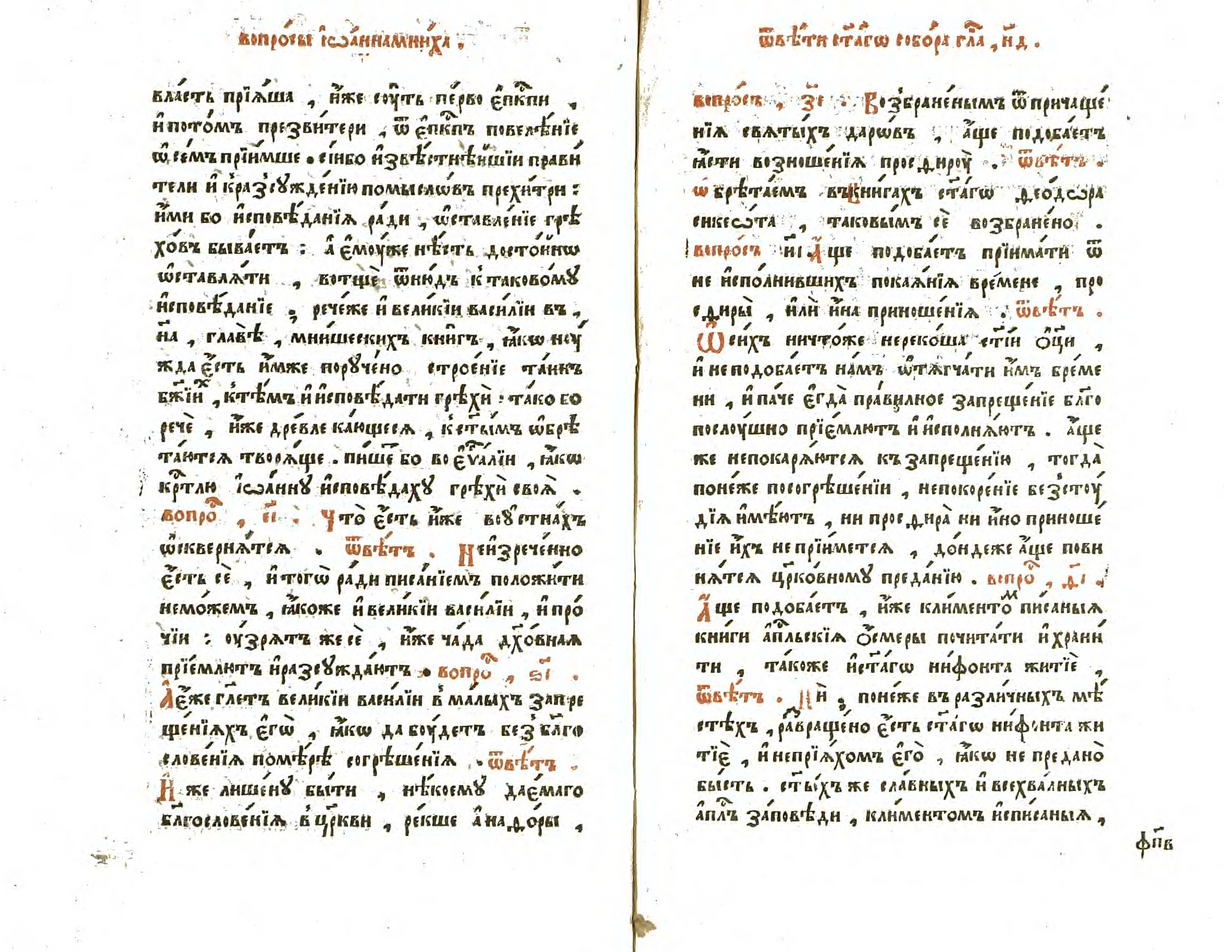 вопро́сы їѡа́нна мни́ха .
вла́сть прїѧ́ша , и҆́же сꙋ́ть пе́рво є҆пⷭ҇кпи ,
и҆ пото́мъ презви́тери , ѿ є҆пⷭ҇кпъ повелѣ́нїе
ѡ҆ се́мъ прїи́мше . сі́и бо и҆звѣ́стнѣйшїи прави́
тели и҆ к̾разꙋжде́нїю помысло́въ прехи́три :
и҆́ми бо и҆сповѣ́данїѧ ра́ди , ѡ҆ставле́нїе грѣ
хо́въ быва́етъ : а҆ є҆мꙋ́же нѣ́сть досто́йнѡ
ѡ҆ставлѧ́ти , вотщѐ ѿню́дъ к̾ таково́мꙋ
и҆сповѣ́данїе , рече́ же и҆ вели́кїи васи́лїи въ ,
с҃па , главѣ̀ , мни́шескихъ кни́гъ , ꙗ҆́кѡ нꙋ́
жда є҆́сть и҆́мже порꙋ́чено строе́нїе та́инъ
бж҃їихъ , к̾ тѣ́мъ и҆ и҆сповѣ́дати грѣхѝ : та́ко бо
речѐ , и҆́же дре́вле ка́ющесѧ , к̾ ст҃ы́мъ ѡ҆брѣ
та́ютсѧ творѧ́ще . пи́шет бо во є҆ѵⷢ҇алїи , ꙗ҆́кѡ
крⷭ҇тлю їѡа́ннꙋ и҆сповѣ́дахꙋ грѣхѝ своѧ̀ .
вопро́с , є҃і . Что̀ є҆́сть и҆́же воꙋстна́хъ
ѡ҆сквернѧ́етсѧ . ѿвѣ́тъ . Неизрече́нно
є҆́сть сѐ , и҆ тогѡ̀ ра́ди писа́нїемъ положи́ти
не мо́жемъ , ꙗ҆́коже и҆ вели́кїи васи́лїи , и҆ про́
чїи : оу҆́зрѧтъ же сѐ , и҆́же ча́да дх҃о́внаѧ
прїе́млютъ и҆ разсꙋжда́ютъ . вопро́с , ѕ҃і .
Є҆́же гл҃етъ вели́кїи васи́лїи в̾ ма́лыхъ запре
ще́нїѧхъ є҆гѡ̀ , ꙗ҆́кѡ да бꙋ́детъ без̾ бл҃го
слове́нїѧ по мѣ́рѣ согрѣше́нїѧ . ѿвѣ́тъ .
И҆́же лише́нꙋ бы́ти , нѣ́коемꙋ дае́маго
бл҃гослове́нїѧ в̾ цр҃кви , ре́кше а҆на́ѳоры ,
ѿвѣ́ти ст҃а́гѡ собо́ра гла̀ , н҃д .
вопро́съ , з҃і . Возбране́нымъ ѿ причаще́
нїѧ свѧты́хъ даро́въ , а҆́ще подоба́етъ
ꙗ҆́сти возноше́нїѧ просѳирꙋ̀ . ѿвѣ́тъ .
ѡ҆брѣта́емъ въ кни́гахъ ст҃а́гѡ ѳео́дѡра
сикеѡ́та , таковы́мъ сѐ возбране́но .
вопро́съ и҃і . А҆́ще подоба́етъ прїима́ти ѿ
не и҆спо́лнившихъ покаѧ́нїѧ вре́мене , про
сѳиры̀ , и҆лѝ и҆́на приноше́нїѧ . ѿвѣ́тъ .
Ѡ҆ си́хъ ничто́же нереко́ша ст҃і́и ѻ҆ц҃ы̀ ,
и҆ не подоба́етъ на́мъ ѡ҆тѧгча́ти и҆́мъ бре́ме
ни , и҆ па́че є҆гда̀ пра́вилное запреще́нїе бл҃го
послꙋ́шно прїе́млютъ и҆ и҆сполнѧ́ютъ . а҆́ще
же непокарѧ́ютсѧ къ запреще́нїю , тогда̀
поне́же по согрѣше́нїи , непокоре́нїе без̾стꙋ́
дїѧ и҆мѣ́ютъ , ни просѳира̀ ни и҆́но приноше́
нїе и҆́хъ не прїи́метсѧ , до́ндеже а҆́ще пови
нѧ́тсѧ цр҃ко́вномꙋ преда́нїю . вопро́с , ѳ҃і .
А҆́ще подоба́етъ , и҆́же климе́нтом пи́саныѧ
кни́ги а҆пⷭ҇льскїѧ ѻ҆́смеры почита́ти и҆ храни́
ти , та́коже и҆ ст҃а́гѡ ни́фонта житїѐ ,
ѿвѣ́тъ . Нѝ , поне́же въ разли́чныхъ мѣ
стѣ́хъ , развраще́но є҆́сть ст҃а́гѡ ни́фонта жи
тїѐ , и҆ непрїѧ́хомъ є҆го̀ , ꙗ҆́кѡ не предано̀
бы́сть . ст҃ы́хъ же сла́вныхъ и҆ всехва́лныхъ
а҆пⷭ҇лъ за́повѣди , климе́нтомъ и҆спи́саныѧ ,
фп҃в